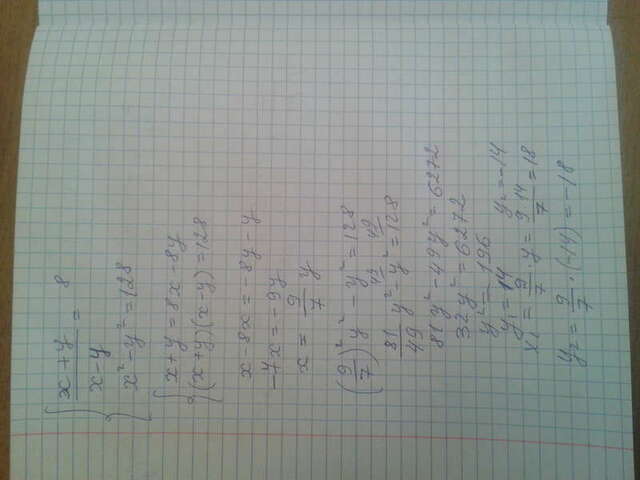 (x+y)/(x-y) = 8
x²-y²=128
x+y=8x-8y
(x+y)(x-y)=128
x-8x=-8y-y
-7x=-9y
x= 9/7 y
(9/7)² y² - y² = 128
81/49 y² - y² = 128
81y²-49y²=6272
32y²=6272
y²=196
y₁=14 y₂=-14
x₁= 9/7 · y = 9·14/7 = 18
y₂= 9/7 · (-14) = -18